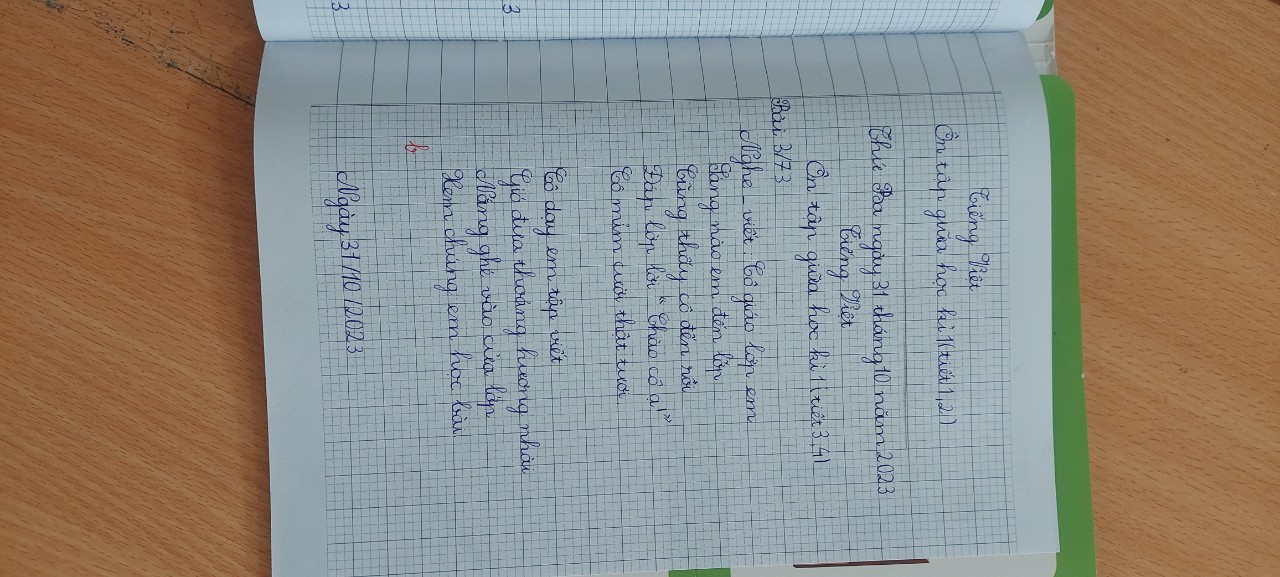 Tiếng Việt
Ôn tập giữa học kì 1 (tiết 1,2)
Thứ Ba ngày 31 tháng 10 năm 2023
Tiếng Việt
Ôn tập giữa học kì 1 (tiết 3,4)
Bài 3/73
Nghe_viết: Cô giáo lớp em
Sáng nào em đến lớp
Cũng thấy cô đến rồi
Đáp lớp lời "Chào cô ạ!"
Cô mỉm cười thật tươi
Cô dạy em tập viết
Gió đưa thoảng hương nhài
Nắng ghé vào cửa lớp
Xem chúng em học bài
Ngày 31/10/2023
3
3